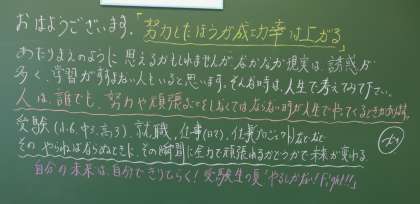 おはようございます。「努力したほうが成功率は上がる」
あたりまえのように思えるかもしれませんが、なかなか現実は誘惑が
多く、学習がすすまない人もいると思います。そんな時は、人生で考えてみて下さい。
人は、誰でも、努力や頑張ることをしなくてはならない時が人生でやってくるときがあります。
受験(小6、中3、高3)、就職、仕事(日々)、仕事プロジェクトなどなど
そのやらねばならぬときに、その瞬間に全力で頑張れるかどうかで未来が変わる。
自分の未来は、自分できりひらく!受験生の夏「やるしかない!!」